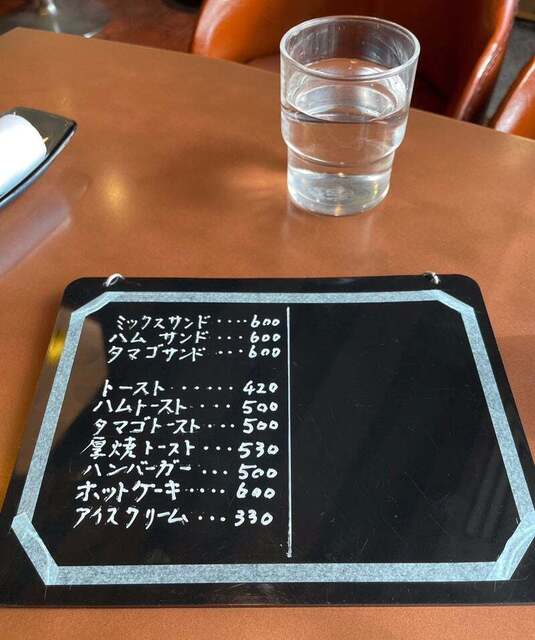 ミックスサンド‥‥600
ハム サンド‥‥600
タマゴサンド‥‥600
トースト‥‥‥420
ハムトースト‥‥500
タマゴトースト‥‥500
厚焼トースト‥‥530
ハンバーガー‥‥500
ホットケーキ‥‥600
アイスクリーム‥‥330